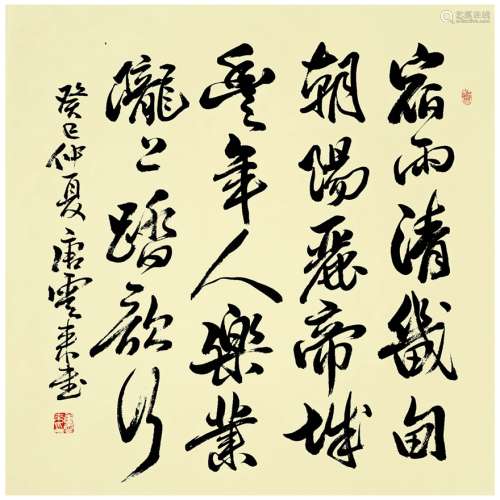 宿雨清畿甸
朝陽麗帝城
豐年人樂業
隴上踏歌行
癸巳仲夏唐雲來書